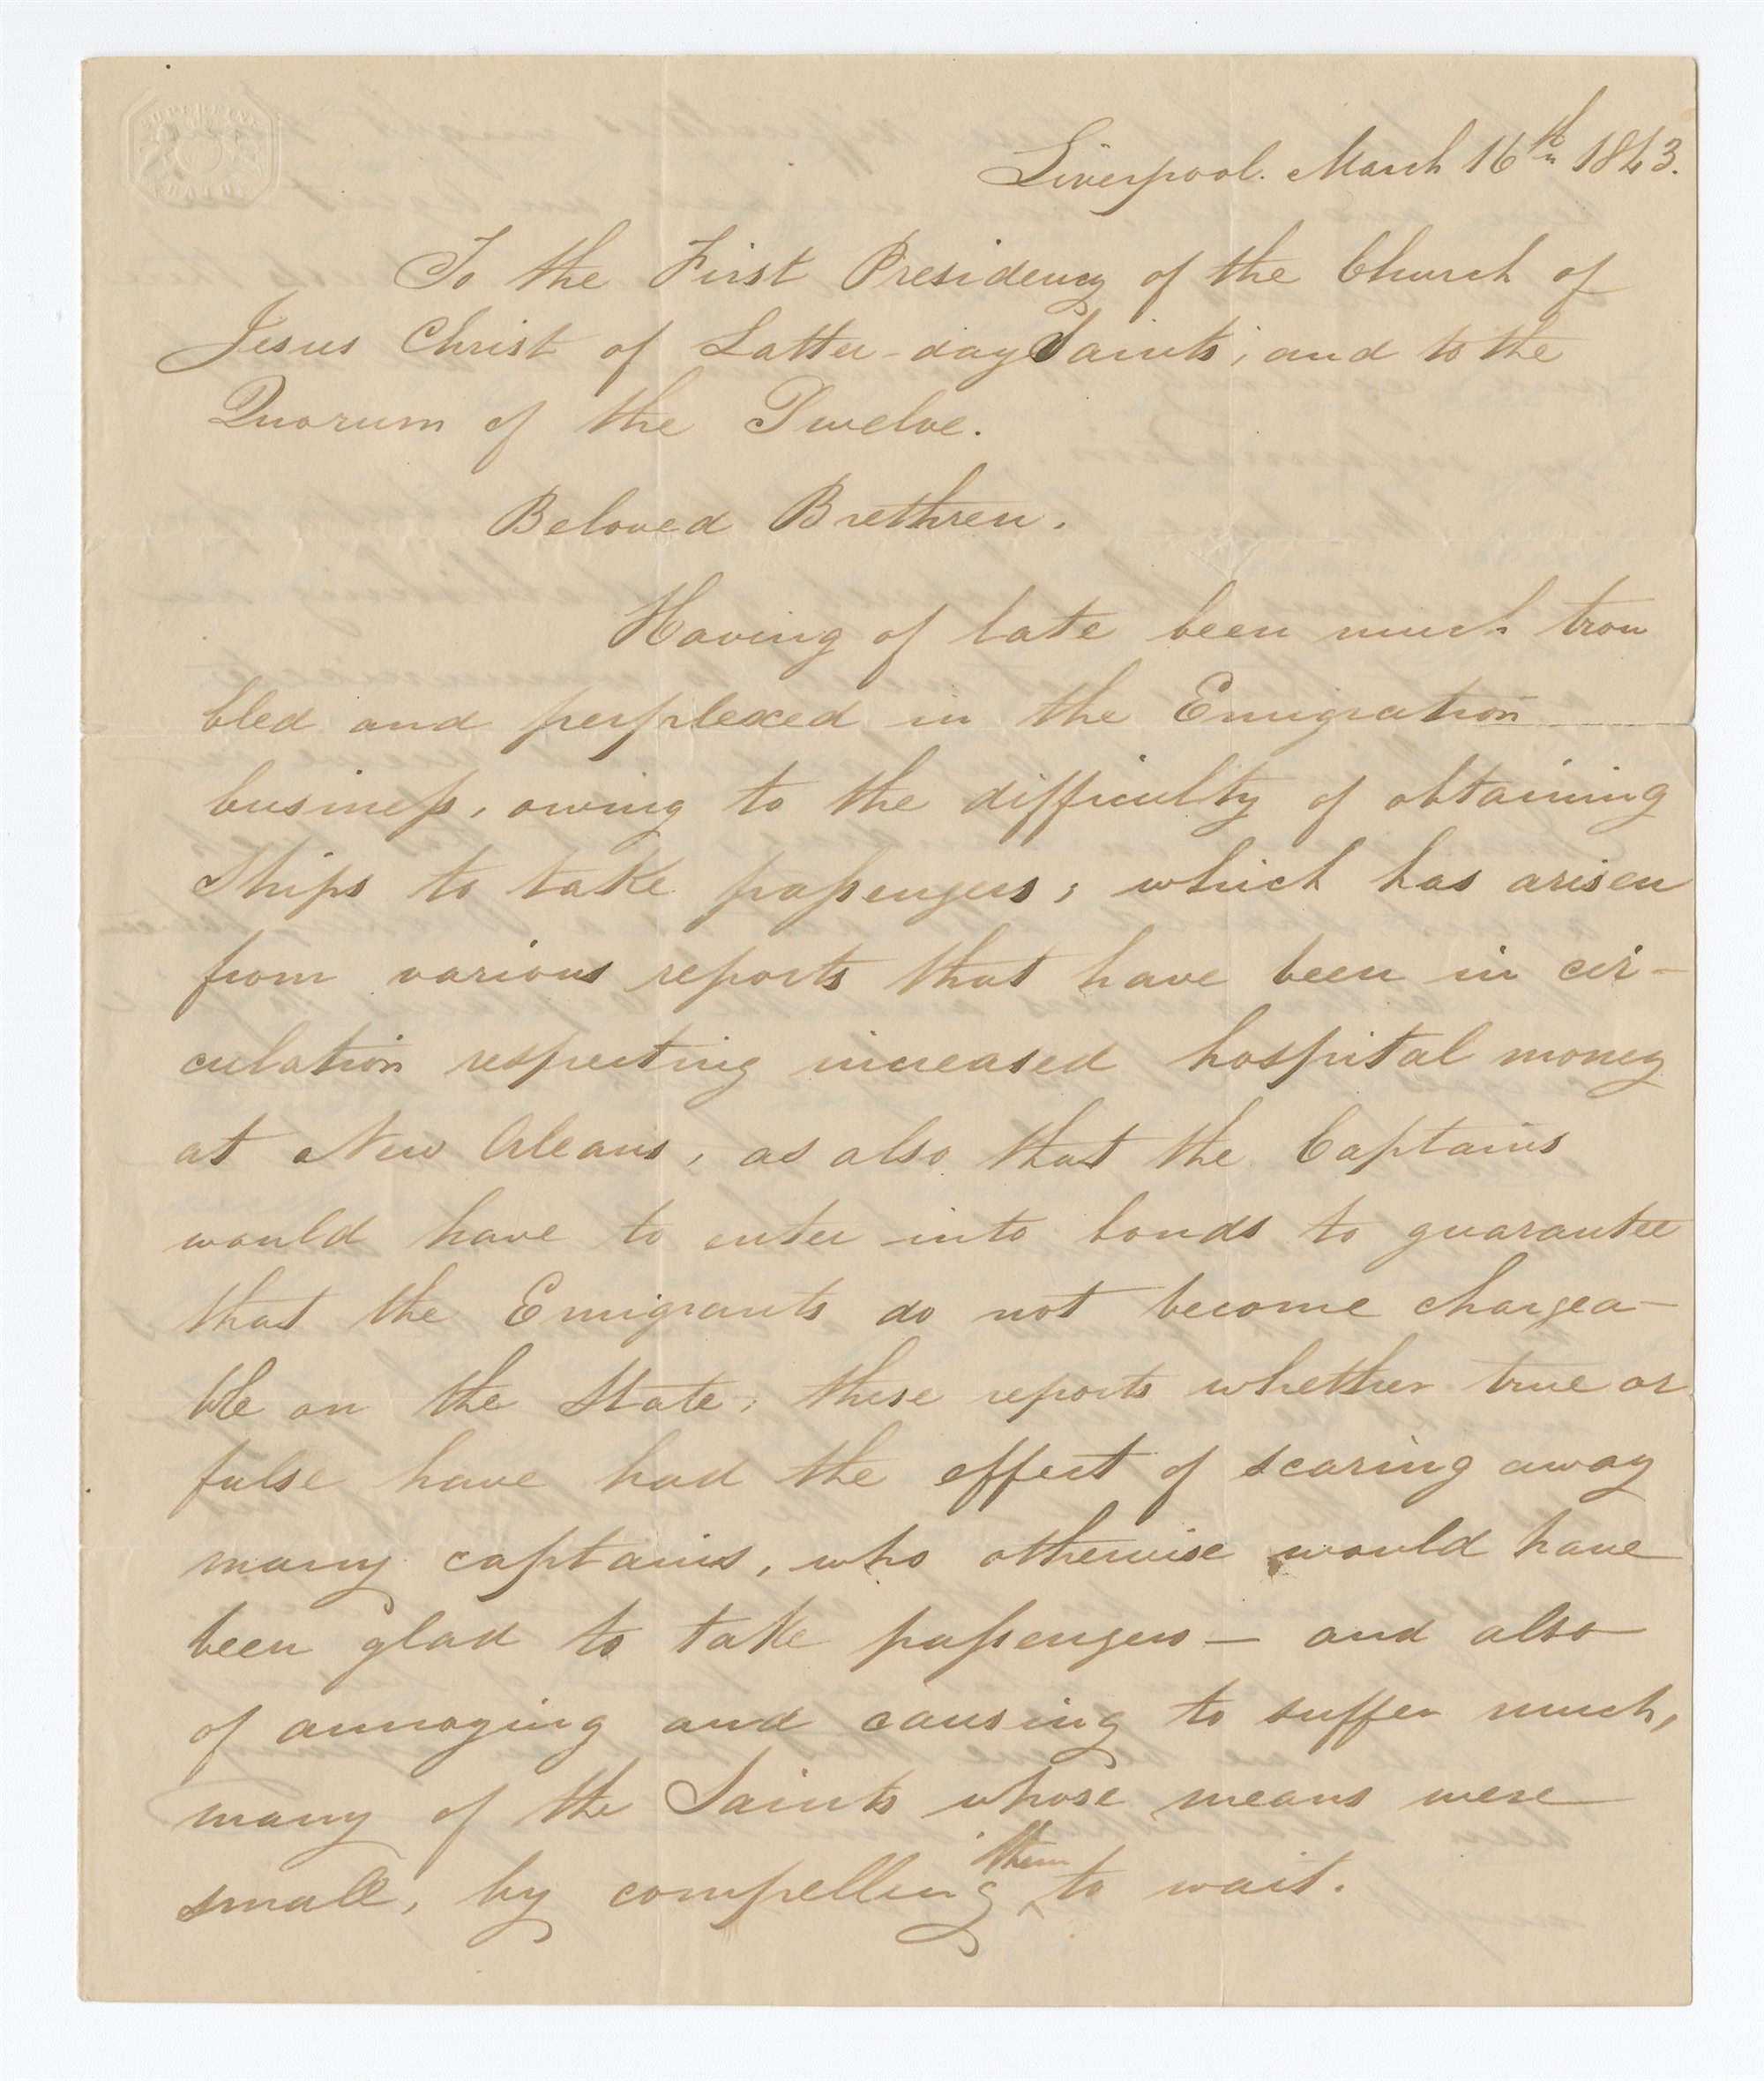 SUPERFINE
Liverpool. March 16th 1843.
To the First Presidency of the Church of
Jesus Christ of Latter-day Saints; and to the
Quorum of the Twelve.
Beloved Brethren.
Having of late been much trou
bled and perplexed in the Emigration
business, owing to the difficulty of obtaining
Ships to take passengers; which has arisen
from various reports that have been in cir-
culation respecting increased hospital money
at New Orleans, as also that the Captains
would have to enter into bonds to guarantee
that the Emigrants do not become chargea-
ble on the State; these reports whether true or
false have had the effect of scaring away
many captains, who otherwise would have
been glad to take passengers — and also
of annoying and causing to suffer much,
many of the Saints whose means were
small, by compelling them to wait.